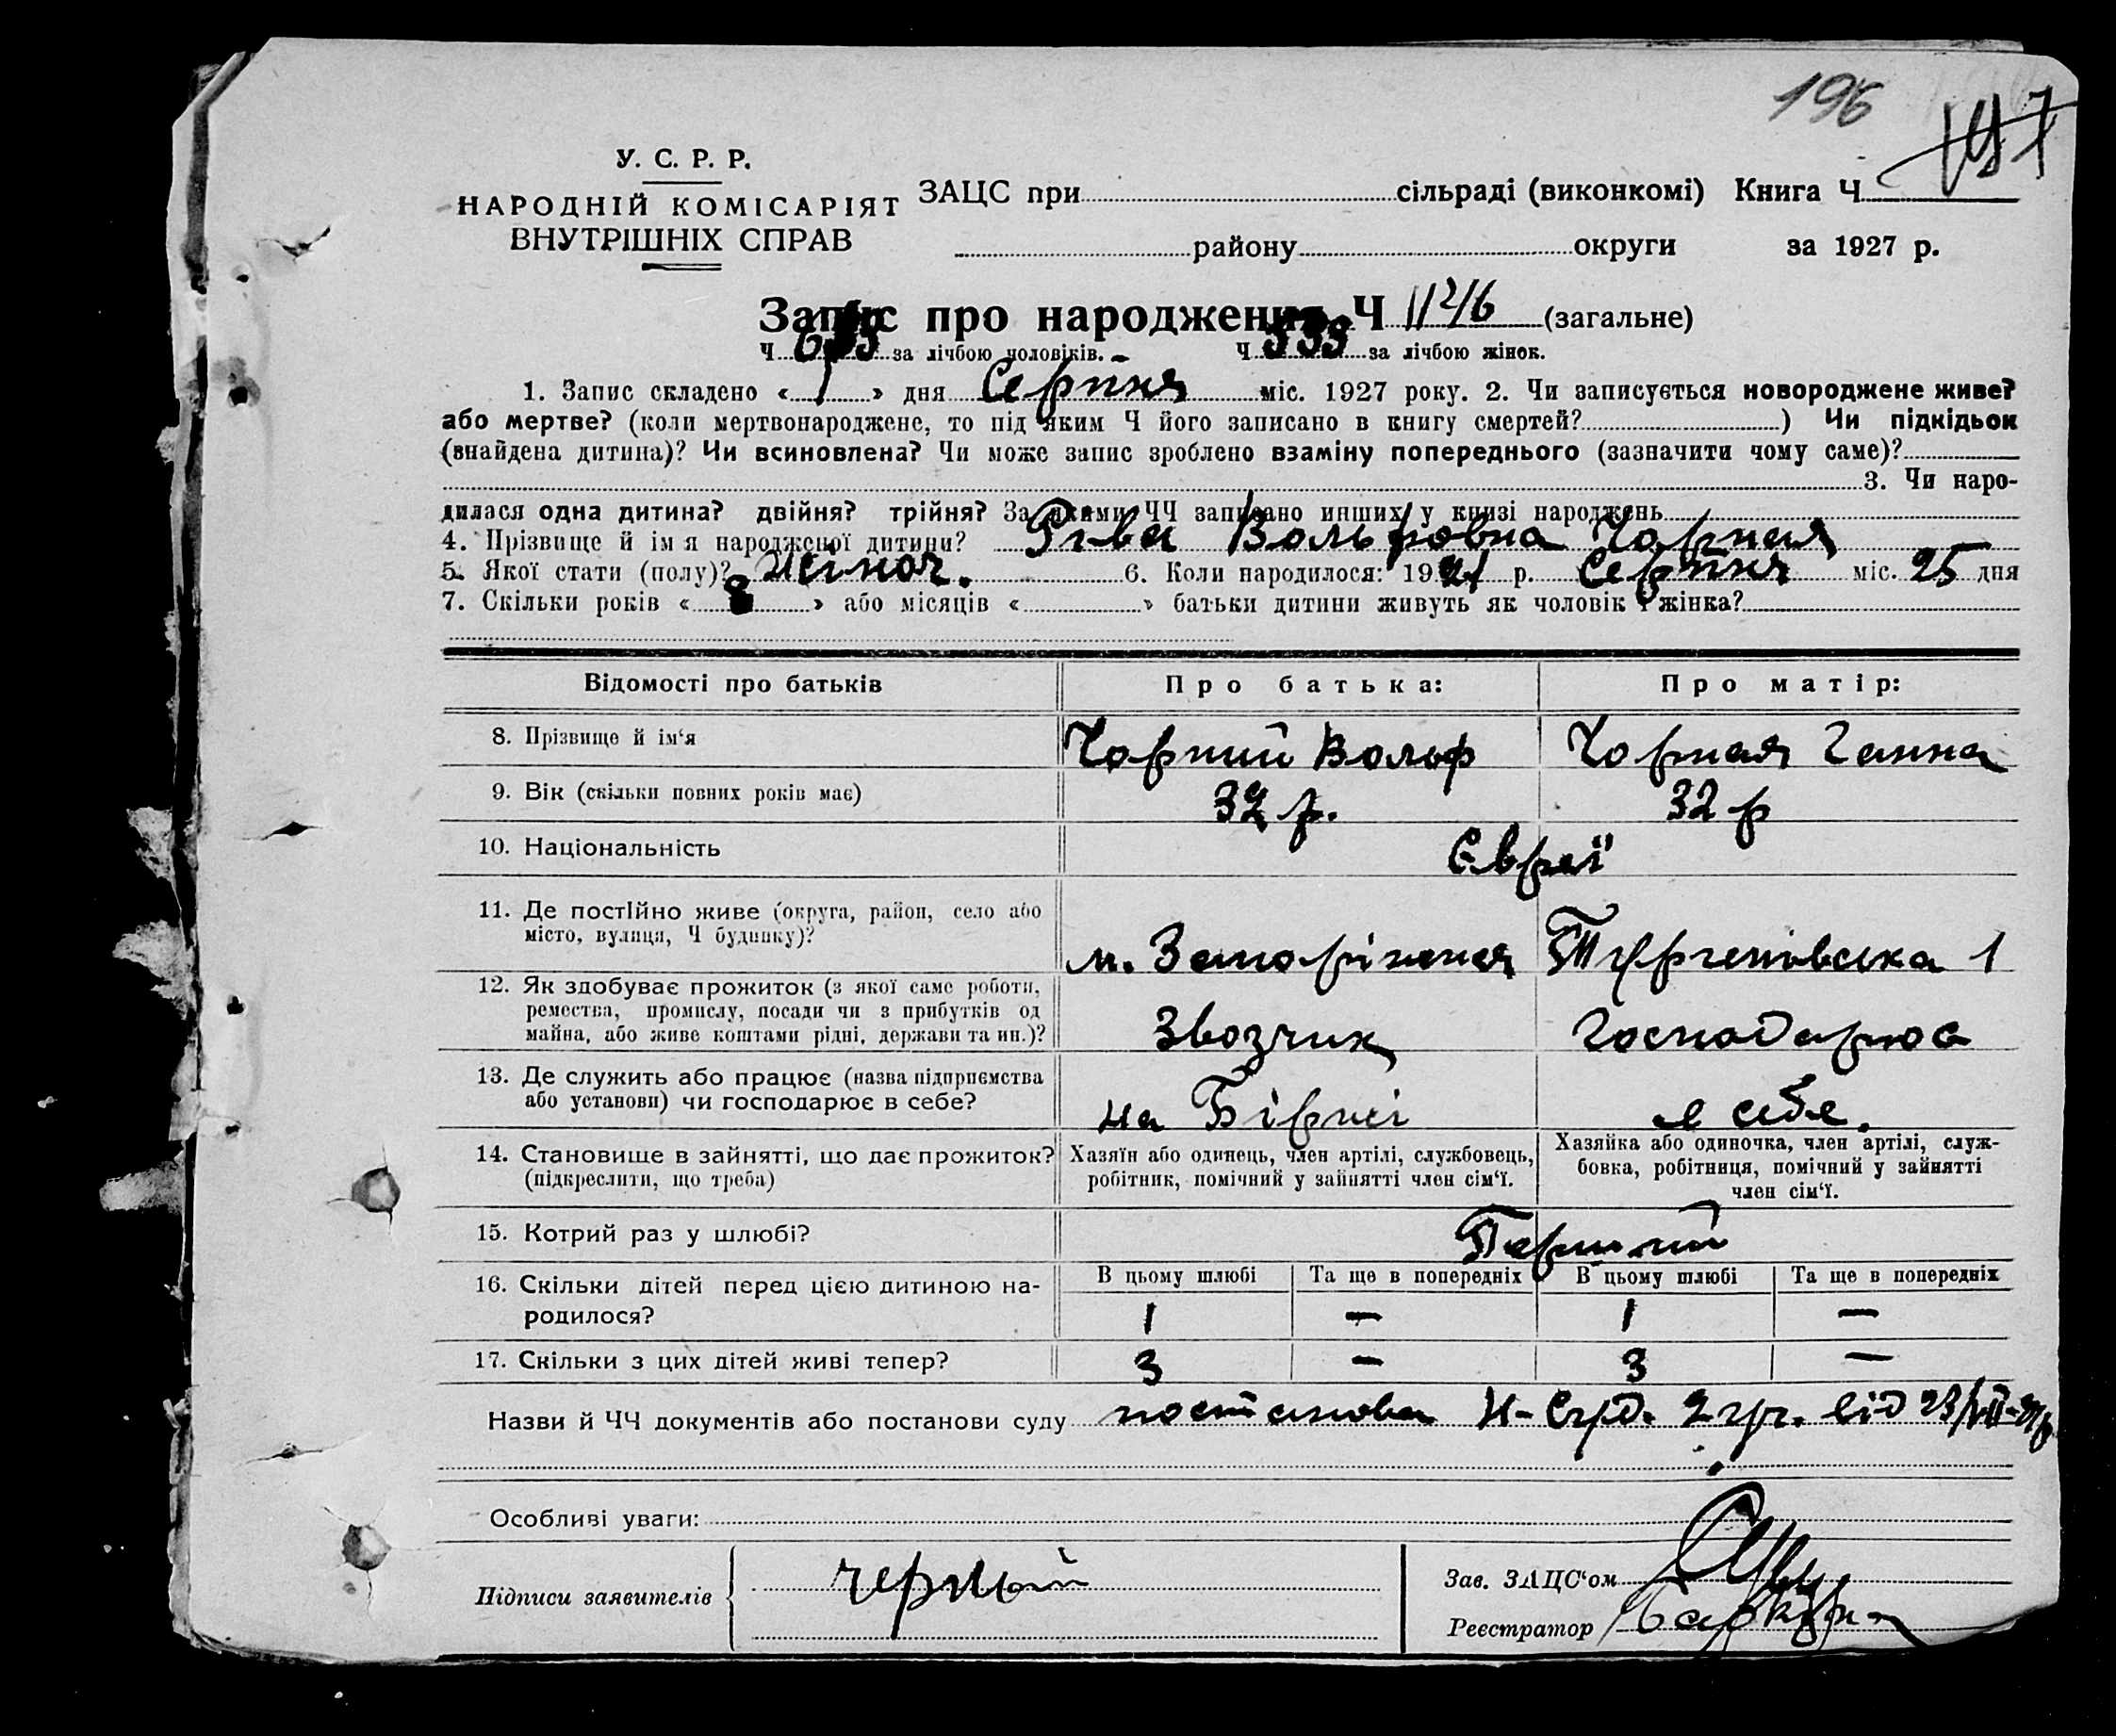 196
У. С. Р. Р.
НАРОДНІЙ КОМІСАРІЯТ
ВНУТРІШНІХ СПРАВ
ЗАЦС при сільраді (виконкомі) Книга Ч
району округи за 1927 р.
Запис про народження Ч 1146 (загальне)
Ч за лічбою чоловіків. Ч 533 за лічбою жінок.
1. Запис складено « 1 » дня Серпня міс. 1927 року. 2. Чи записується новороджене живе?
або мертве? (коли мертвонароджене, то під яким Ч його записано в книгу смертей? ) Чи підкідьок
(внайдена дитина)? Чи всиновлена? Чи може запис зроблено взаміну попереднього (зазначити чому саме)?
3. Чи наро-
дилася одна дитина? двійня? трійня? За якими ЧЧ записано инших у книзі народжень
4. Прізвище й ім я народженої дитини? Рива Вольфовна Чорная
5. Якої стати (полу)? Жіноч. 6. Коли народилося: 19 р. Серпня міс. 25 дня
7. Скільки років « 8 » або місяців « » батьки дитини живуть як чоловік і жінка?
Відомості про батьків Про батька: Про матір:
8. Прізвище й ім‘я Чорний Вольф Чорная Ганна
9. Вік (скільки повних років має) 32 р. 32 р
10. Національність Євреї
11. Де постійно живе (округа, район, село або
місто, вулиця, Ч будинку)? м. Запоріжжя Тургенівська 1
12. Як здобуває прожиток (з якої саме роботи,
ремества, промислу, посади чи з прибутків од
майна, або живе коштами рідні, держави та ин.)? Звозчик Господарює
13. Де служить або працює (назва підприємства
або установи) чи господарює в себе? на Біржі в себе.
14. Становище в зайнятті, що дає прожиток?
(підкреслити, що треба)
Хазяїн або одинець, член артілі, службовець,
робітник, помічний у зайнятті член сім‘ї.
Хазяйка або одиночка, член артілі, служ-
бовка, робітниця, помічний у зайнятті
член сім‘ї.
15. Котрий раз у шлюбі? Перший
16. Скільки дітей перед цією дитиною на-
родилося?
В цьому шлюбі Та ще в попередніх В цьому шлюбі Та ще в попередніх
1 — 1 —
17. Скільки з цих дітей живі тепер? 3 — 3 —
Назви й ЧЧ документів або постанови суду постанова Н-Суд. 2 уч. від 23/VII-27р
Особливі уваги:
Підписи заявителів Черный
Зав. ЗАЦС‘ом
Реєстратор